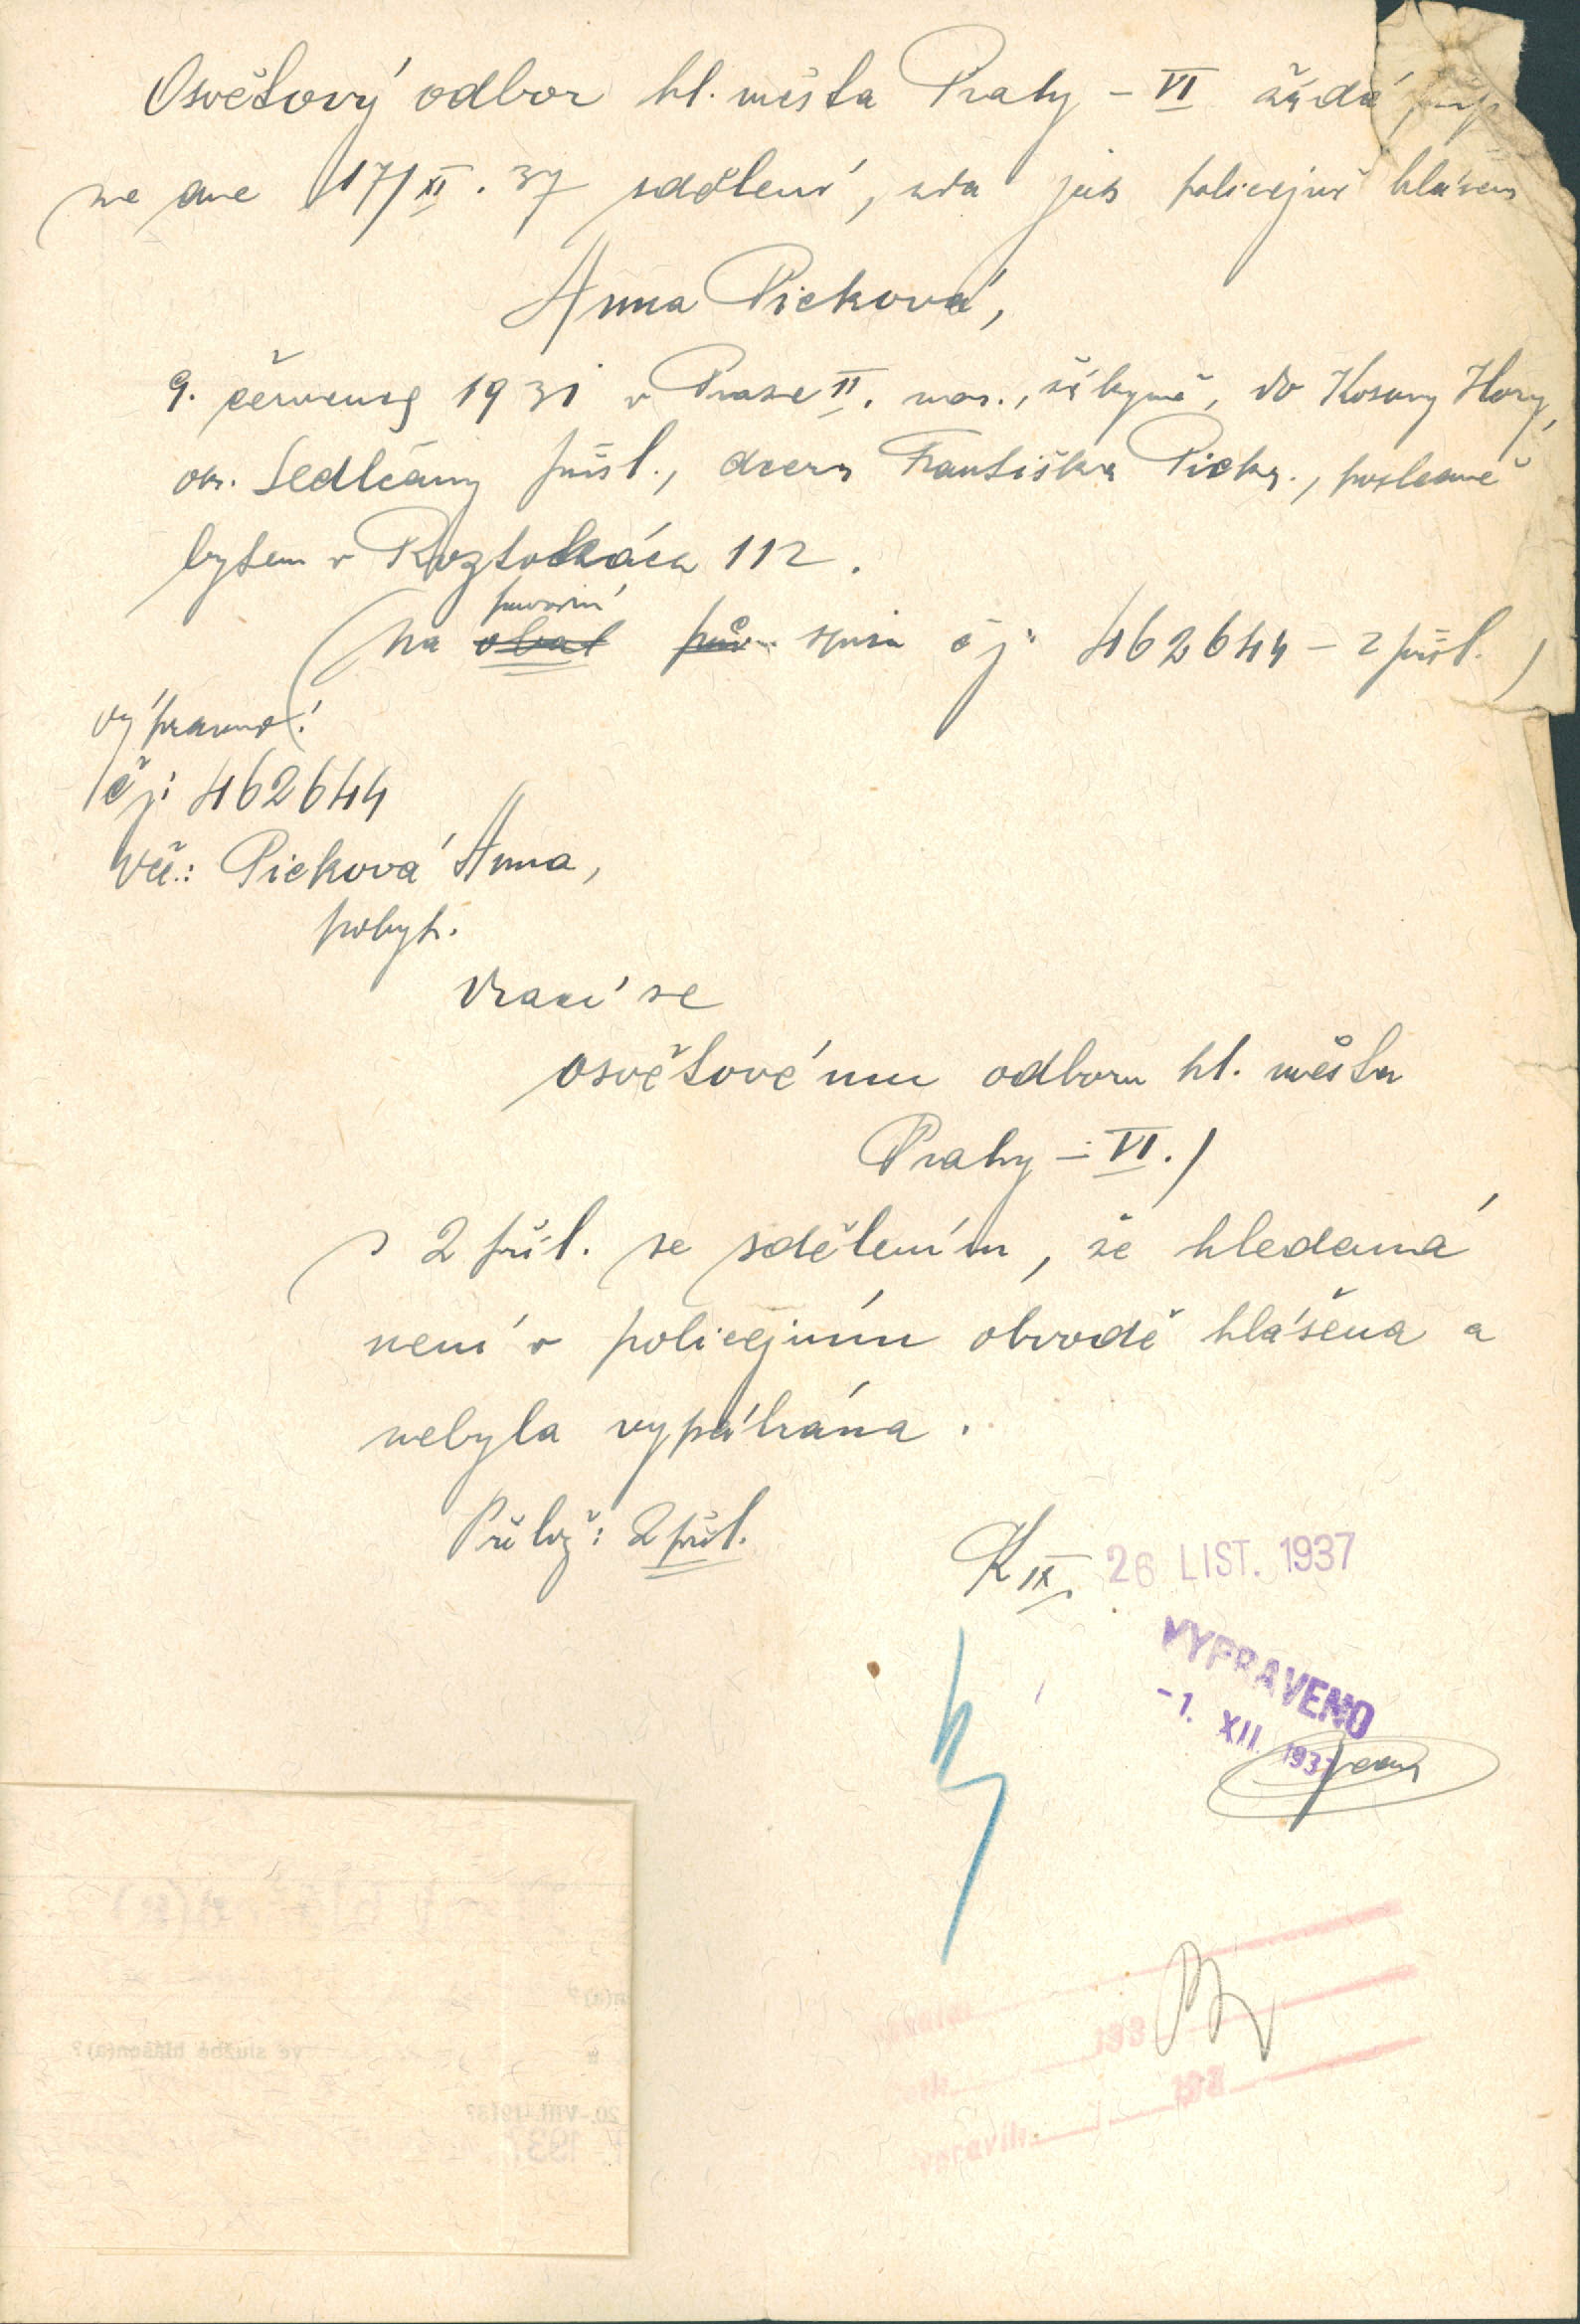 Osvětový odbor hl. města Prahy – VI žádá
ze dne 17/XI. 37 sdělení, zda jest policejně hlášena
Anna Picková,
9. července 1931 v Praze II. nar., žákyně, do Kosovy Hory,
okr. Sedlčany přísl., dcera Františka Picka., posledně
bytem v Roztokách 112.
(na původní spisu čj. 462644 – 2 příl.)
výpravna!
čj: 462644
Věc: Picková Anna,
pobyt.
Vrací se
osvětovému odboru hl. města
Prahy – VI./
s 2 příl. se sdělením, že hledaná
není v policejním obvodě hlášena a
nebyla vypátrána.
Přilož: 2 příl.
K IX. 26 LIST. 1937
VYPRAVENO
-1. XII. 1937
193
193
ve službě hlášen(a)?
20.-VIII.-1913?